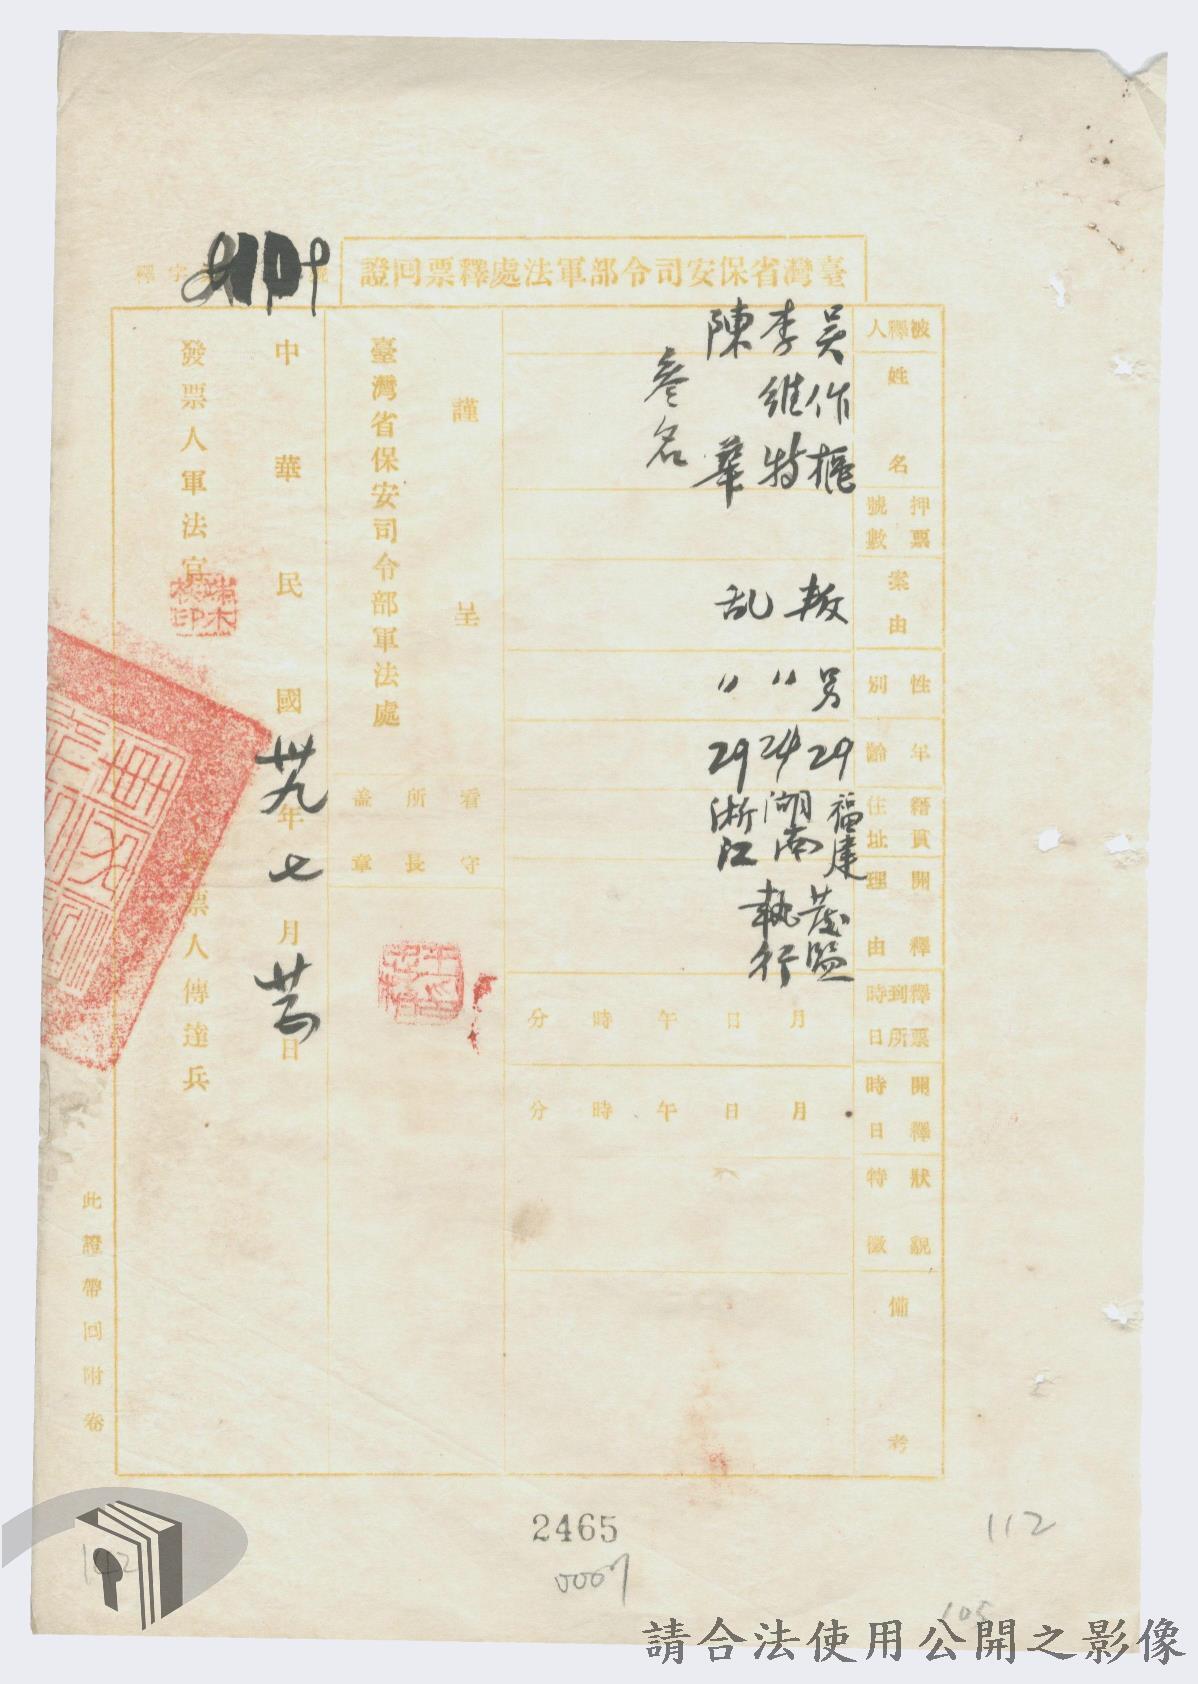 臺灣省保安司令部軍法處釋票回證
被釋人姓名
吳作樞
李維特
陳華
叁名
押票號數
案由
叛乱
性別
男
〃
〃
年齡
29
24
29
籍貫住址
福建
湖南
浙江
開釋理由
發監
執行
釋票到所時日
月 日 午 時 分
開釋時日
月 日 午 時 分
狀貌特徵
備考
謹呈
臺灣省保安司令部軍法處
看守所長盖章
中華民國卅九年七月 日
發票人軍法官
票人傳達兵
此證帶回附卷
字 釋
2465
112
142
105
請合法使用公開之影像